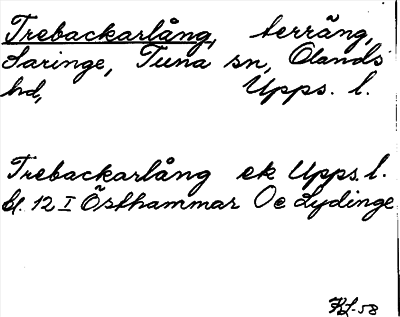 Trebackarlång, terräng,
Saringe, Tuna sn, Olands
hd, Upps. l.
Trebackarlång ek Upps. l.
bl. 12 I Östhammar Oe Lydinge
KL-58